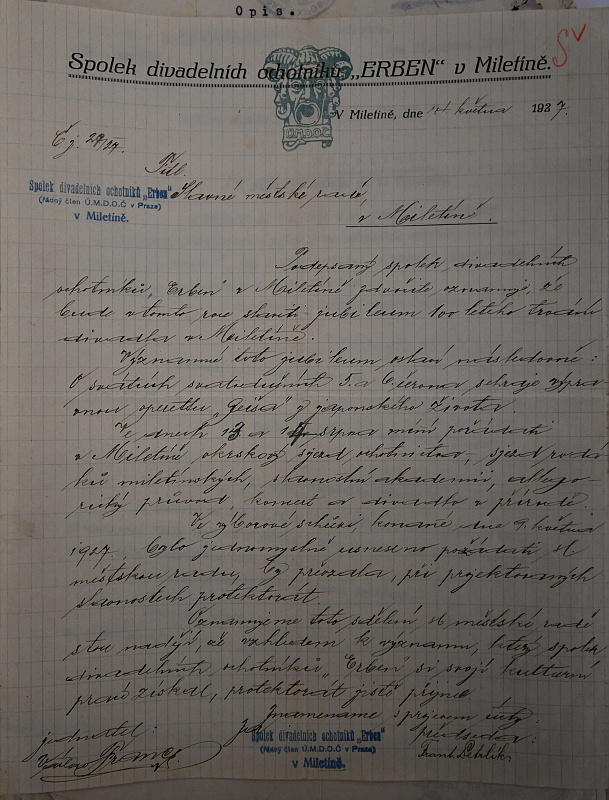 Opis.
Spolek divadelních ochotníků „ERBEN“ v Miletíně.
Ú.M.D.O.Č.
V Miletíně, dne 14. května 1937.
Čj. 24/27.
Titl.
Spolek divadelních ochotníků „Erben“
(řádný člen Ú.M.D.O.Č v Praze)
v Miletíně.
Slavné městské radě
v Miletíně.
Podepsaný spolek divadelních
ochotníků „Erben“ v Miletíně zdvořile oznamuje, že
bude v tomto roce slaviti jubileum 100 letého trvání
divadla v Miletíně.
Významné toto jubileum oslaví následovně:
O svátcích svatodušních 5. a 6. června sehraje výprav
nou operettu „Geiša“ z japonského života.
Ve dnech 13 a 14 srpna míní pořádati
v Miletíně okrskový sjezd ochotnictva, sjezd rodá
ků miletínských, slavnostní akademii, allego-
rický průvod, koncert a divadlo v přírodě.
Ve výborové schůzi, konané dne 9. května
1927, bylo jednomyslně usneseno požádati sl.
městskou radu, by převzala, při projektovaných
slavnostech protektorát.
Oznamujeme toto sdělení sl. městské radě
s tou nadějí, že vzhledem k významu, který spolek
divadelních ochotníků „Erben“ si svojí kulturní
prací získal, protektorát jistě přijme.
Znamenáme s projevem úcty:
jednatel:
předseda:
Spolek divadelních ochotníků „Erben“
(řádný člen Ú.M.D.O.Č v Praze)
v Miletíně.
Frant.